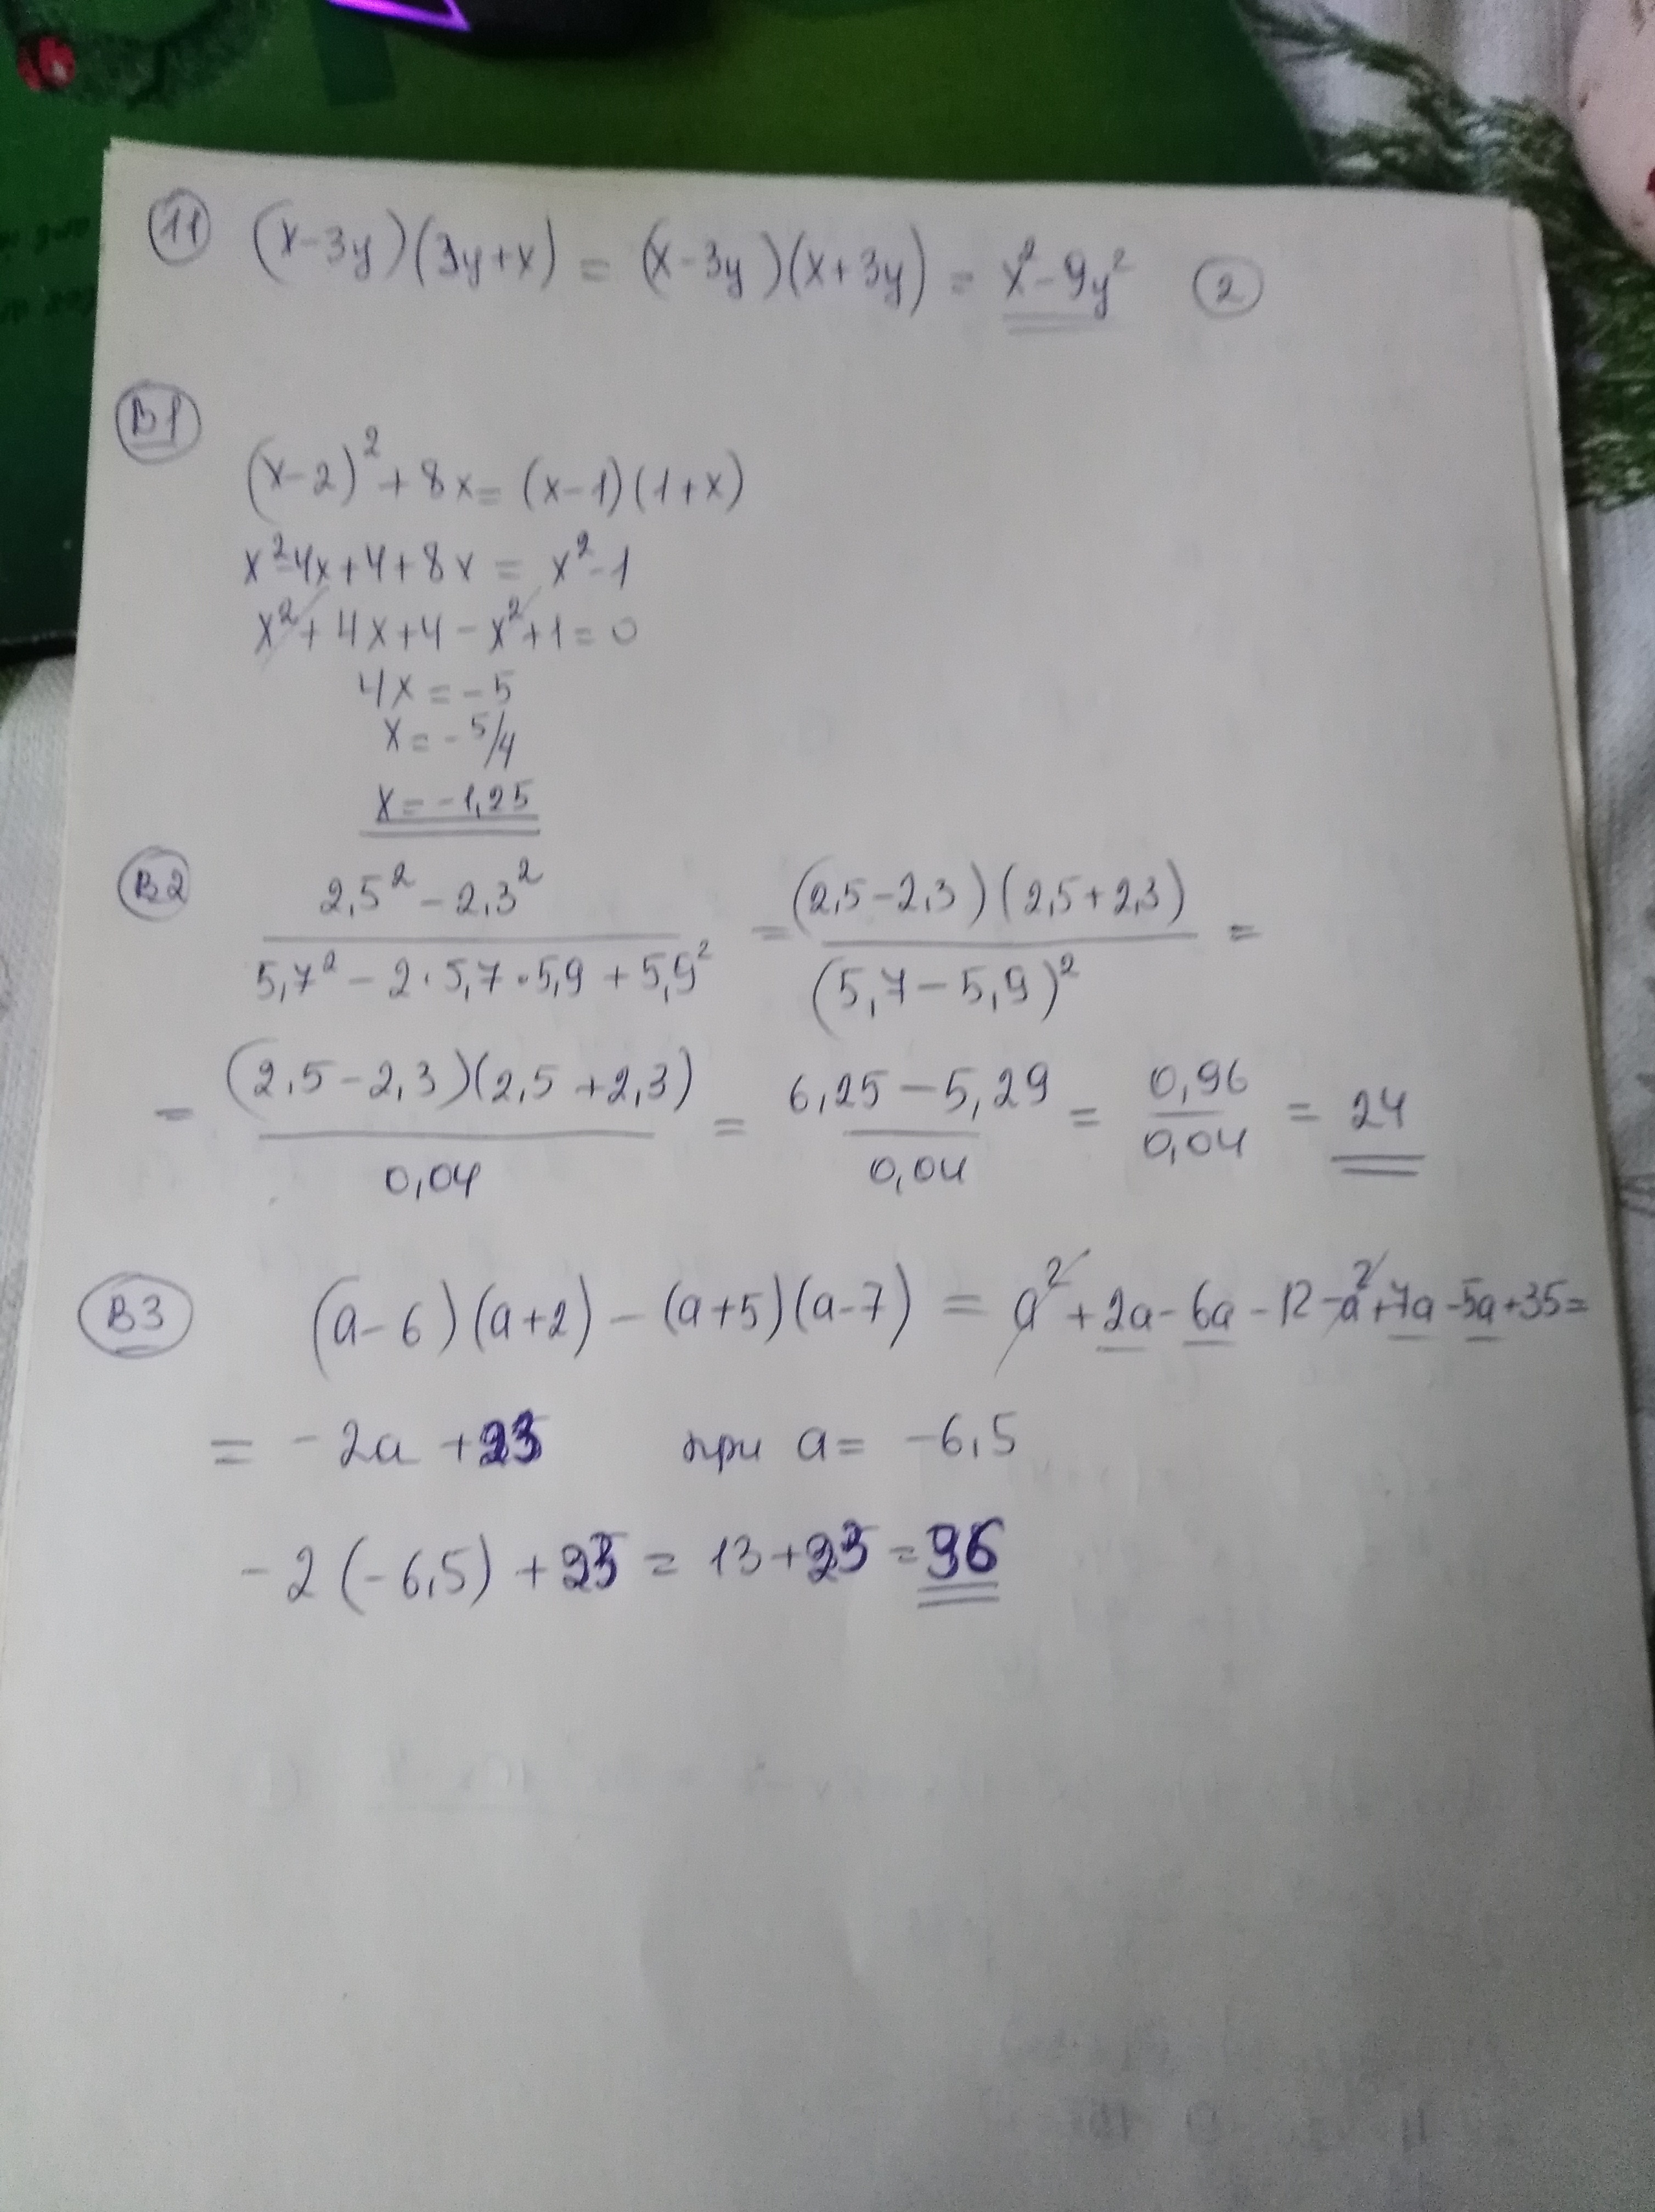 11 (x-3y)(3y+x) = (x-3y)(x+3y) = x²-9y² 2
B1
(x-2)²+8x=(x-1)(1+x)
x²-4x+4+8x = x²-1
x²+4x+4-x²+1=0
4x=-5
x=-5/4
x=-1,25
B2 (2,5²-2,3²)/(5,7²-2·5,7·5,9+5,9²) = ((2,5-2,3)(2,5+2,3))/((5,7-5,9)²) =
= ((2,5-2,3)(2,5+2,3))/(0,04) = (6,25-5,29)/(0,04) = 0,96/0,04 = 24
B3 (a-6)(a+2)-(a+5)(a-7) = a²+2a-6a-12-a²+7a-5a+35=
= -2a+23 при a= -6,5
-2(-6,5)+23 = 13+23=36